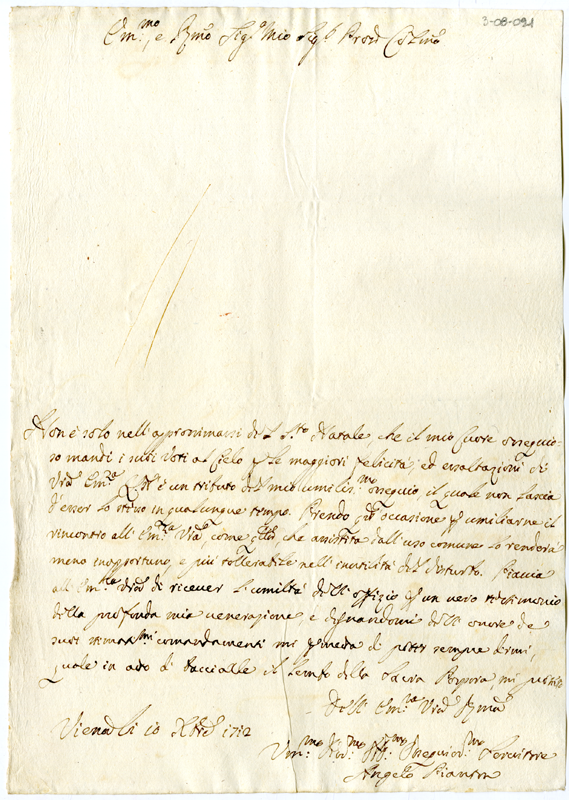 3-08-091
Em.mo, e Rmo Sig.e Mio Sig.e Prone Colmo
Non è solo nell'approssimarsi del S.to Natale, che il mio Cuore ossequio-
so mandi i voti al Cielo p le maggiori felicità, ed essaltazioni di
Vra Em.a Qsto è un tributo del mio umiliss.mo ossequio il quale non lascia
d'esser lo stesso in qualunque tempo. Prendo qsta occasione p umiliarne il
rincontro all'Em.za Vra, come qlla che assistita dall'uso comune lo renderà
meno inopportuno, e più tollerabile nell'inutilità del disturbo. Piaccia
all'Em.za Vra di ricever l'umiltà dell'offizio p un vero testimonio
della profonda mia venerazione, e degnandomi dell'onore de
suoi stimatmi comandamenti mi pmeta di poter sempre dirmi,
quale in atto di bacciarle il lembo della Sacra Porpora, mi
Dell'Em.za Vra Rma
Viena li 10 Xbre 1712
Um.mo Dev.mo Ossequios.mo Servitore
Angelo